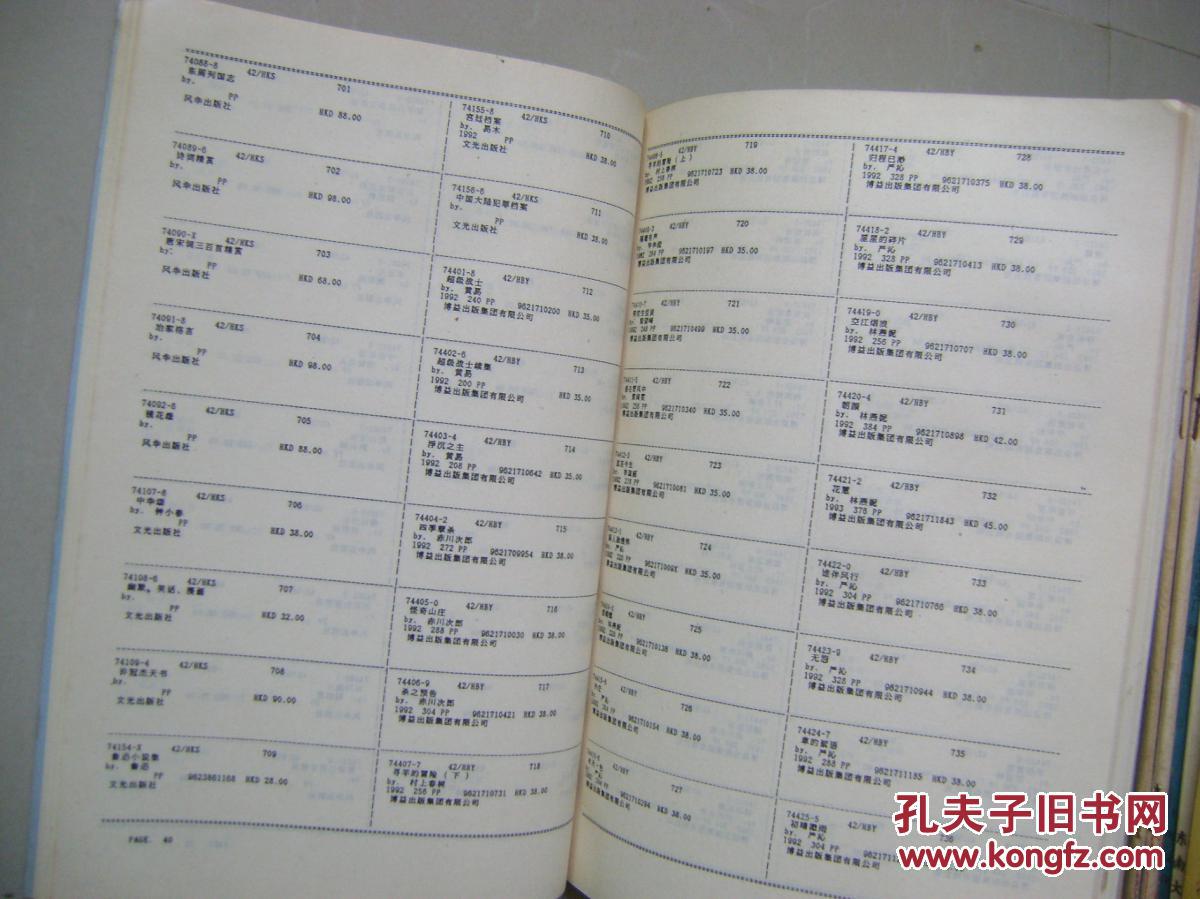 74088-8 42/HKS 701
东周列国志
by.
PP HKD 88.00
风华出版社
74089-6 42/HKS 702
诗词精赏
by.
PP HKD 98.00
风华出版社
74090-X 42/HKS 703
唐宋词三百首精赏
by.
PP HKD 68.00
风华出版社
74091-8 42/HKS 704
治家格言
by.
PP HKD 98.00
风华出版社
74092-6 42/HKS 705
镜花缘
by.
PP HKD 88.00
风华出版社
74107-8 42/HKS 706
中华颂
by. 钟小春
PP HKD 38.00
文光出版社
74108-6 42/HKS 707
幽默。笑话、漫画
by.
PP HKD 32.00
文光出版社
74109-4 42/HKS 708
许冠杰天书
by.
PP HKD 90.00
文光出版社
74154-X 42/HKS 709
鲁迅小说集
by. 鲁迅
PP 9623861168 HKD 28.00
文光出版社
PAGE. 40
74155-8 42/HKS 710
宫廷档案
by. 易木
1992 PP HKD 38.00
文光出版社
74156-6 42/HKS 711
中国大陆犯罪档案
by.
PP HKD 38.00
文光出版社
74401-8 42/HBY 712
超级战士
by. 黄易
1992 240 PP 9621710200 HKD 35.00
博益出版集团有限公司
74402-6 42/HBY 713
超级战士续集
by. 黄易
1992 200 PP HKD 35.00
博益出版集团有限公司
74403-4 42/HBY 714
浮沉之主
by. 黄易
1992 208 PP 9621710642 HKD 35.00
博益出版集团有限公司
74404-2 42/HBY 715
四季孽杀
by. 赤川次郎
1992 272 PP 9621709954 HKD 38.00
博益出版集团有限公司
74405-0 42/HBY 716
怪奇山庄
by. 赤川次郎
1992 288 PP 9621710030 HKD 38.00
博益出版集团有限公司
74406-9 42/HBY 717
杀之预告
by. 赤川次郎
1992 304 PP 9621710421 HKD 38.00
博益出版集团有限公司
74407-7 42/HBY 718
寻羊的冒险（下）
by. 村上春树
1992 256 PP 9621710731 HKD 38.00
博益出版集团有限公司
42/HBY 719
寻羊的冒险（上）
by. 村上春树
1992 256 PP 9621710723 HKD 38.00
博益出版集团有限公司
42/HBY 720
9621710197 HKD 35.00
博益出版集团有限公司
42/HBY 721
9621710499 HKD 35.00
博益出版集团有限公司
42/HBY 722
9621710340 HKD 35.00
博益出版集团有限公司
42/HBY 723
9621710081 HKD 35.00
博益出版集团有限公司
42/HBY 724
by. 严沁
962171009X HKD 35.00
博益出版集团有限公司
42/HBY 725
9621710138 HKD 38.00
博益出版集团有限公司
42/HBY 726
9621710154 HKD 38.00
博益出版集团有限公司
42/HBY 727
9621710294 HKD 38.00
博益出版集团有限公司
74417-4 42/HBY 728
归程已渺
by. 严沁
1992 328 PP 9621710375 HKD 38.00
博益出版集团有限公司
74418-2 42/HBY 729
星星的碎片
by. 严沁
1992 328 PP 9621710413 HKD 38.00
博益出版集团有限公司
74419-0 42/HBY 730
交江烟浪
by. 林燕妮
1992 256 PP 9621710707 HKD 38.00
博益出版集团有限公司
74420-4 42/HBY 731
朝颜
by. 林燕妮
1992 384 PP 9621710898 HKD 42.00
博益出版集团有限公司
74421-2 42/HBY 732
花蕙
by. 林燕妮
1993 376 PP 9621711843 HKD 45.00
博益出版集团有限公司
74422-0 42/HBY 733
迷伴风行
by. 严沁
1992 304 PP 9621710766 HKD 38.00
博益出版集团有限公司
74423-9 42/HBY 734
无怨
by. 严沁
1992 328 PP 9621710944 HKD 38.00
博益出版集团有限公司
74424-7 42/HBY 735
草的絮语
by. 严沁
1992 288 PP 9621711185 HKD 38.00
博益出版集团有限公司
74425-5 42/HBY 736
初晴微雨
by. 严沁
1992 304 PP
博益出版集团有限公司
孔夫子旧书网
www.kongfz.com